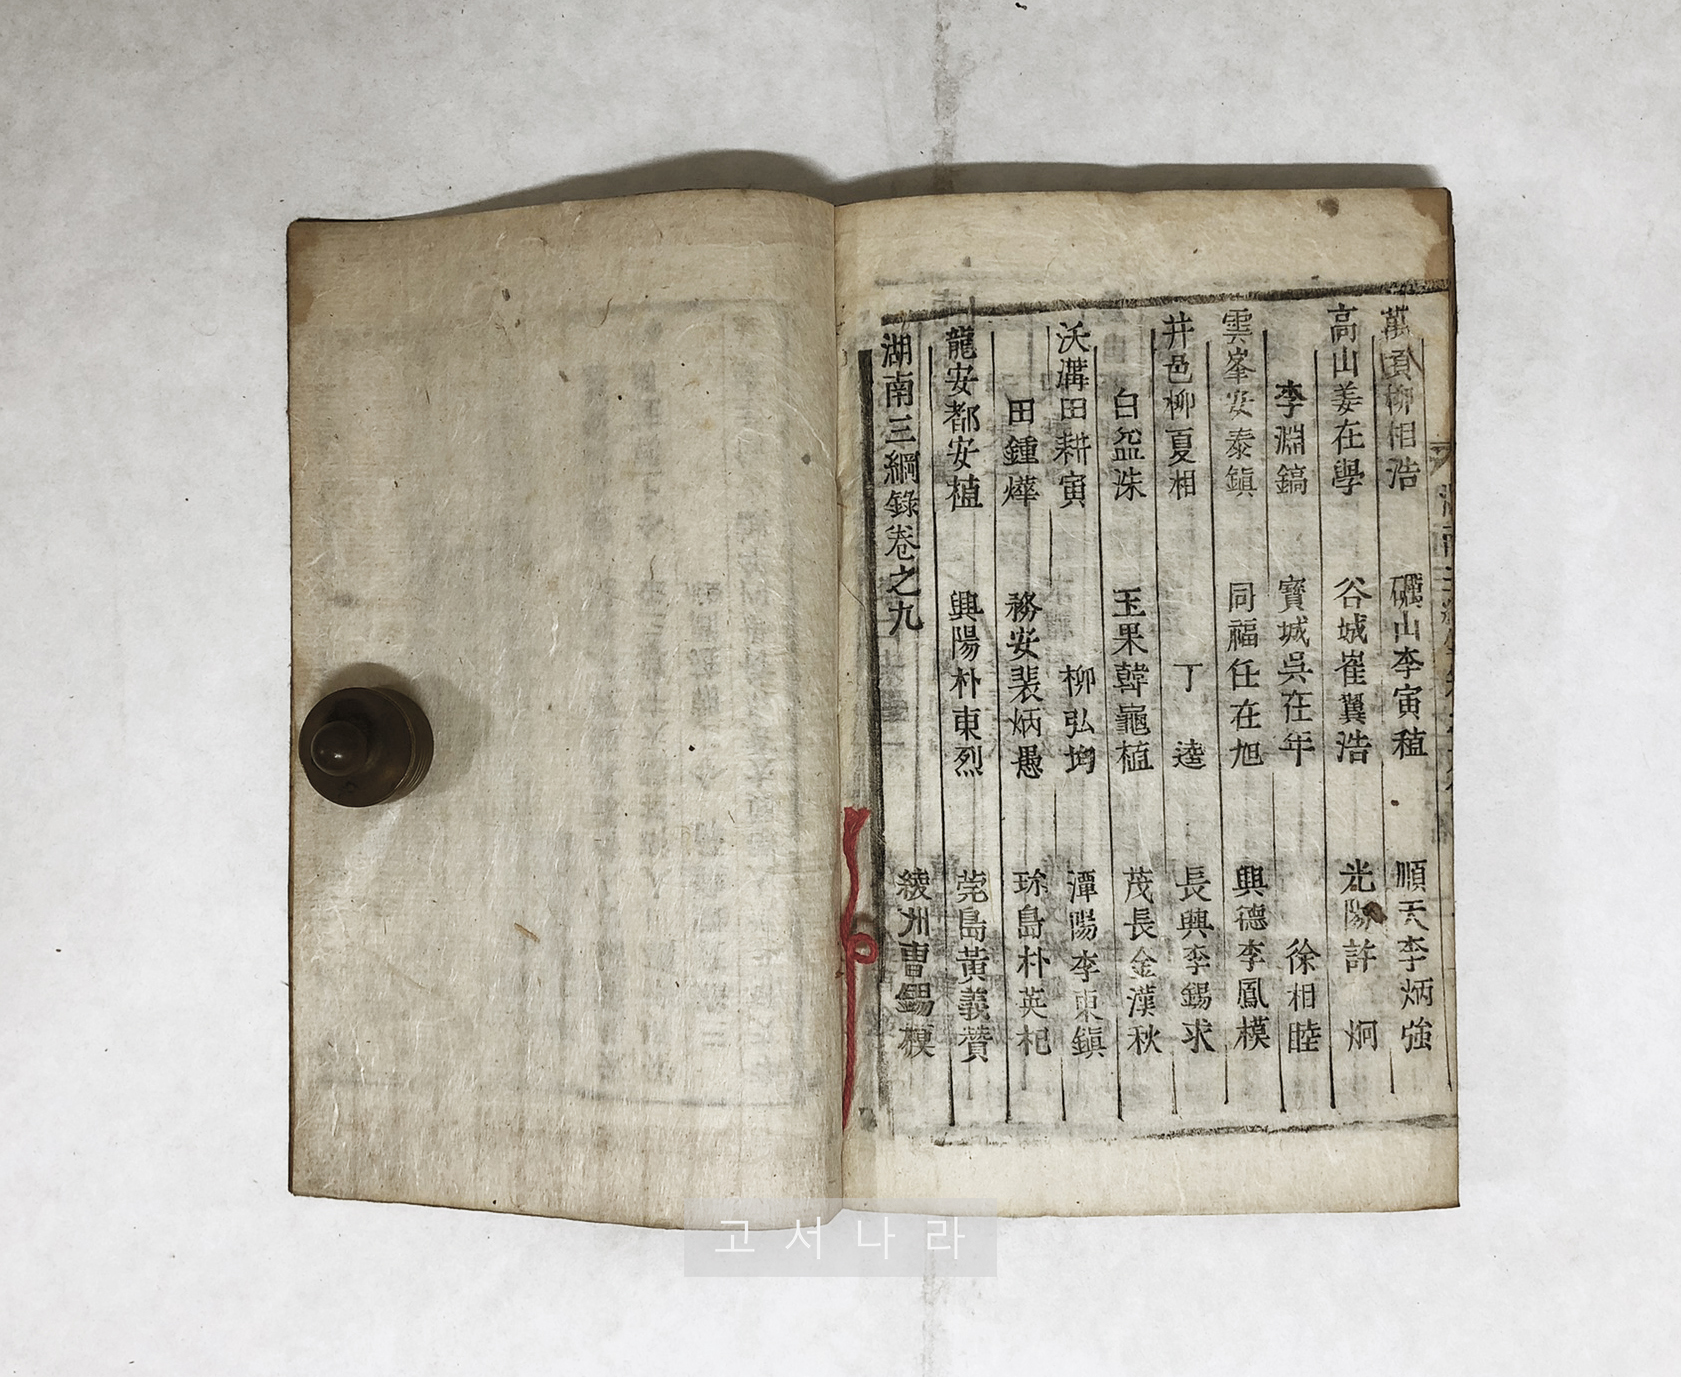 萬頃柳相浩 礪山李寅稙 順天李炳強
高山姜在學 谷城崔翼浩 光陽許炯
李淵鎬 寶城吳在年 徐相睦
雲峯安泰鎭 同福任在旭 興德李鳳模
井邑柳夏相 丁逵 長興李錫求
白益洙 玉果韓龜植 茂長金漢秋
沃溝田耕寅 柳弘均 潭陽李東鎭
田鍾燁 務安裴炳愚 珍島朴英杞
龍安都安植 興陽朴東烈 莞島黃義贊
湖南三綱錄卷之九 綾州曹錫模
고서나라